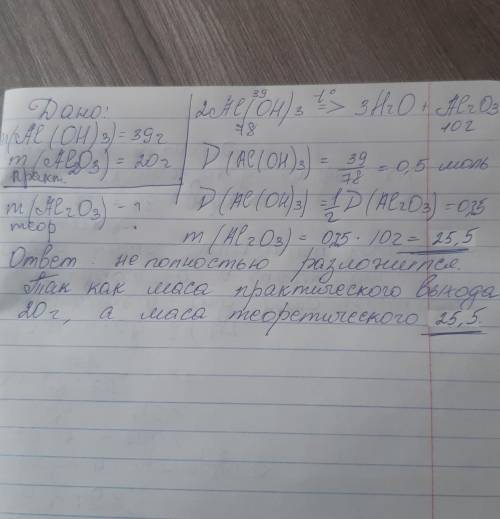 Дано:
m(Al(OH)3)=39г
m(Al2O3)=20г
практ.
m(Al2O3) - ?
теор
39
2Al(OH)3 t°=> 3H2O + Al2O3
78 102
D(Al(OH)3) = 39/78 = 0,5 моль
D(Al(OH)3) = 1/2 D(Al2O3) = 0,25
m(Al2O3) = 0,25 · 102 = 25,5
Ответ: не полностью разложится.
Так как маса практического выхода
20г, а маса теоретического 25,5.